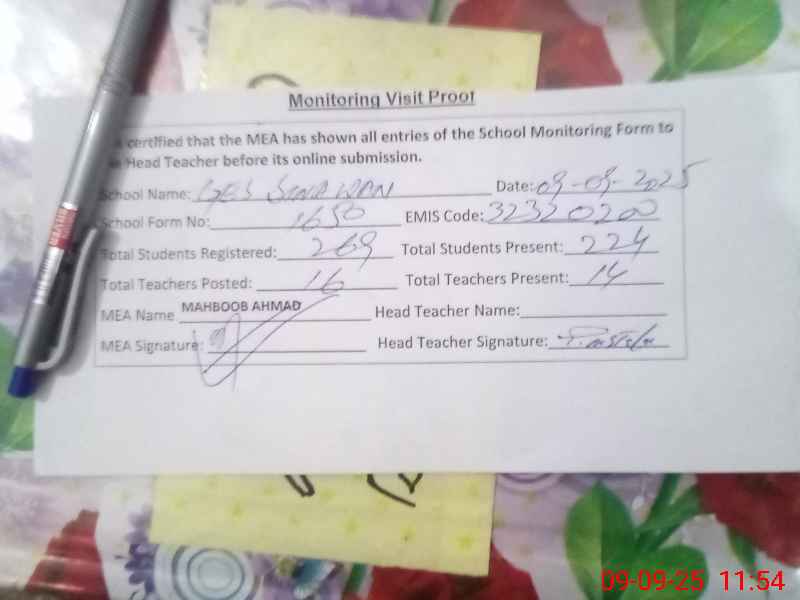 Monitoring Visit Proof
certified that the MEA has shown all entries of the School Monitoring Form to
Head Teacher before its online submission.
School Name: GES SINAWAN Date: 09-09-2025
School Form No: 1650 EMIS Code: 32320200
Total Students Registered: 269 Total Students Present: 224
Total Teachers Posted: 16 Total Teachers Present: 14
MEA Name MAHBOOB AHMAD Head Teacher Name:
MEA Signature: Head Teacher Signature:
09-09-25 11:54